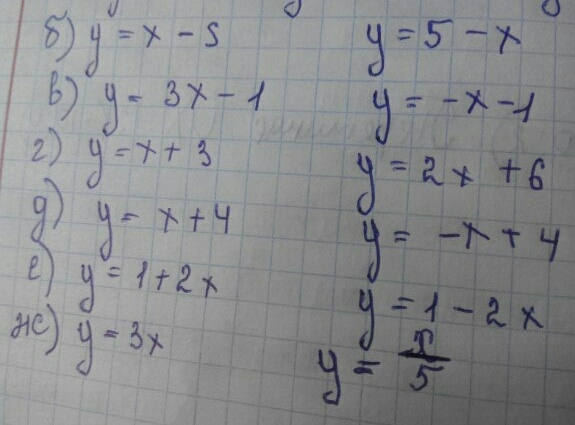 б) y = x - 5 y = 5 - x
в) y = 3x - 1 y = -x - 1
г) y = x + 3 y = 2x + 6
д) y = x + 4 y = -x + 4
е) y = 1 + 2x y = 1 - 2x
ж) y = 3x y = /5